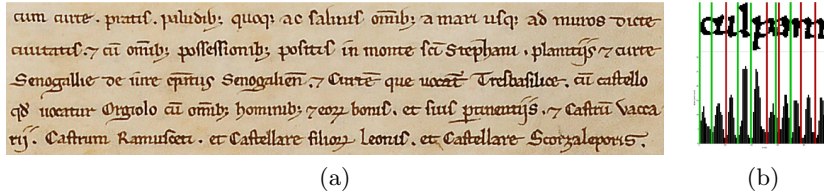 cum curte . pratis . paludib; quoq; ac salinis omīb; a mari usq; ad muros dicte
ciuitatis . ⁊ cū omīb; possessionib; positis in monte scī Stephani . planitijs ⁊ curte
Senogallie de iure comitatus Senogalień . ⁊ Curtē que uocat̄ Tresbasilice . cū castello
qđ uocatur Orgiolo cū omīb; hominib; ⁊ eoꝝ bonis . et suis ꝑtinentijs . ⁊ Castrū Vacca
rij . Castrum Ramusceti . et Castellare filioꝝ Leonis . et Castellare Scorzaleporis .
culpam
(a)
(b)